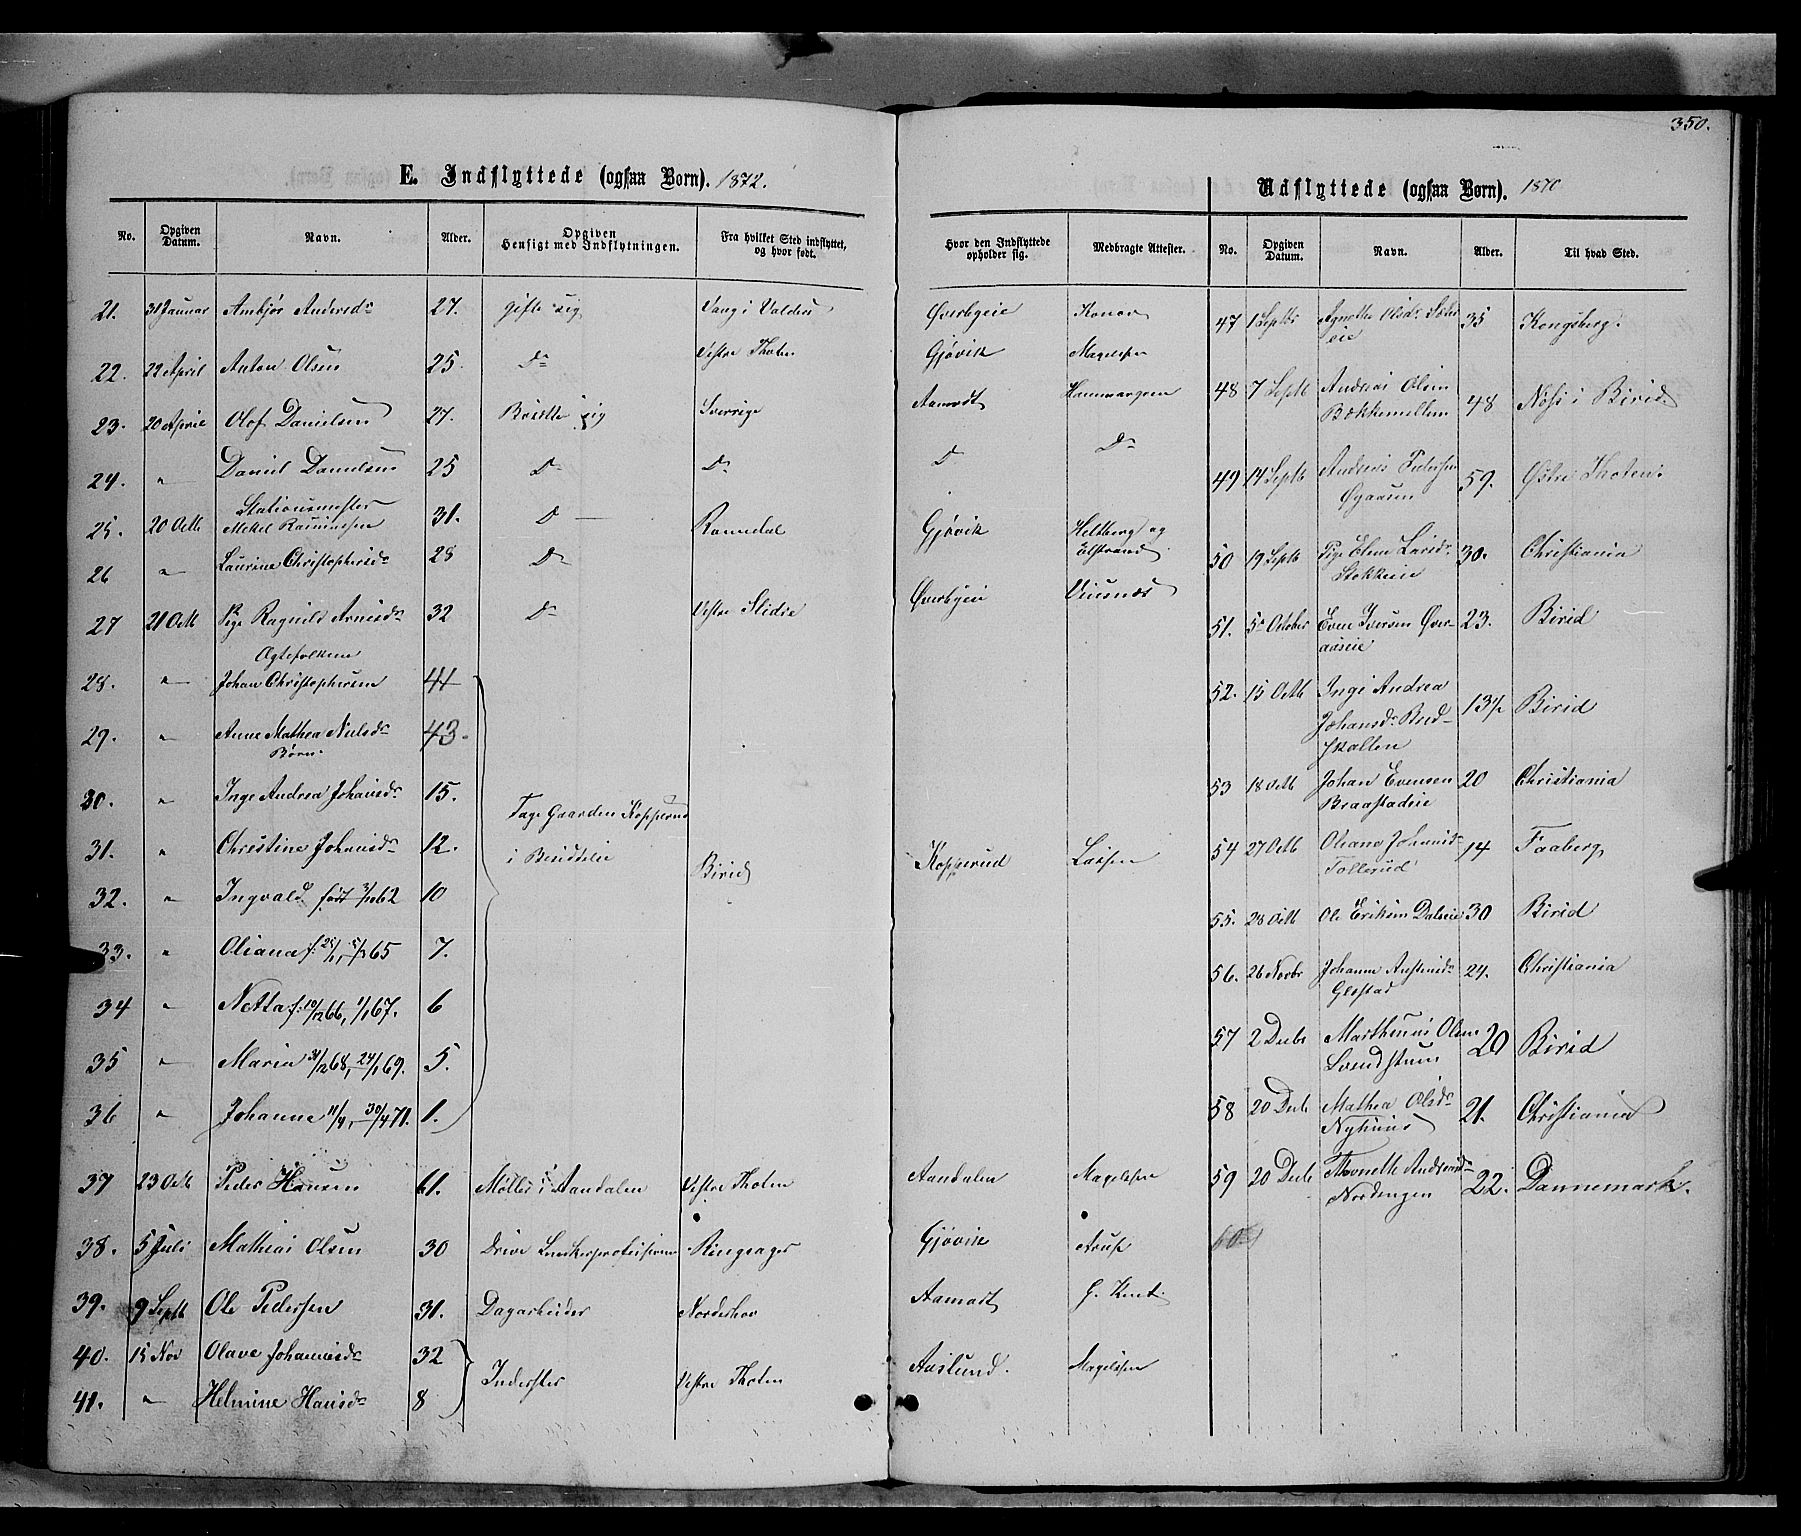 350.
E. Indflyttede (ogsaa Børn). 1872.
No. Opgiven Datum. Navn. Alder. Opgiven Hensigt med Indflytningen. Fra hvilket Sted indflyttet, og hvor født. Hvor den Indflyttede opholder sig. Medbragte Attester.
21. 31 Januar Ambjør Andersdr 27. gifte sig Vang i Valders Øverbyeie Konow
22. 22 April Anton Olsen 25. Do Vestre Thoten Gjøvik Magelssen
23. 20 April Olof Danielsen 27. Bosætte sig Sverrige Aamodt Hammargren
24. " Daniel Danielsen 25 Do Do Do Do
Stationsmester
25. 20 Octb Mekel Rasmussen 31. Do Romsdal Gjøvik Heltberg og
26 " Laurine Christophersdr 28 Do Elstrand
27 21 Octb Pige Ragnild Arnesdr 32 Do Vestre Slidre Øverbyeie
Ægtefolkene
28. " Johan Christophersen 44
29. " Anne Mathea Nielsdr 43.
Børn.
30. " Inge Andrea Johansdr 15. Tage Gaarden Kopperud
31. " Christine Johansdr 12. i Besiddelse Birid Kopperud Lassen
32. " Ingvald født 3/1 62 10
33. " Oliana f. 25/1, 5/3 65 7.
34 " Netta f. 10/12 66, 1/1 67. 6
35 " Maria 31/12 68, 24/1 69. 5.
36 " Johanne 11/4, 30/4 71. 1.
37 23 Octb Peder Hansen 61. Møller i Aandalen Vestre Thoten Aandalen Magelssen
38. 5 Juli Mathias Olsen 30 Drive Ringsager Gjøvik Arup
39. 9 Septb Ole Pedersen 31. Dagarbeider Norderhov Aamodt
40. 15 Nov Olave Johannesdr 32 Inderster Vestre Thoten Aaslund. Magelssen
41. " Helmine Hansdr 8
Udflyttede (ogsaa Børn). 1870
No. Opgiven Datum. Navn. Alder. Til hvad Sted.
47 1 Septb Agnethe Olsdr
eie 35 Kongsberg.
48 7 Septb Andreas Olsen
Bækkemellem 48 i Birid
49 14 Septb Andreas Pedersen
Øgaarden 59. Østre Thoten.
50 19 Septb Pige Eline Larsdr
Stokkeie 30. Christiania
51. 5 October Even Iversen Øver-
aaseie 23. Birid
52. 15 Octb Inge Andrea
Johansdr Bred-
skallen 13 1/2 Birid
53 18 Octb Johan Evensen
Braastadeie 20 Christiania
54 27 Octb Oliana Johansdr
Tollerud 14 Faaberg
55. 28 Octb Ole Eriksen Dalseie 30 Birid
56. 26 Novbr Johanne Austensdr
Glæstad 24. Christiania
57 2 Decbr Marthinus Olsen
Svendstuen 20 Birid
58 20 Decb Mathea Olsdr
Nyhuus 21. Christiania
59 20 Decb Thonette Andreasdr
Nordengen 22. Dannemark.
60